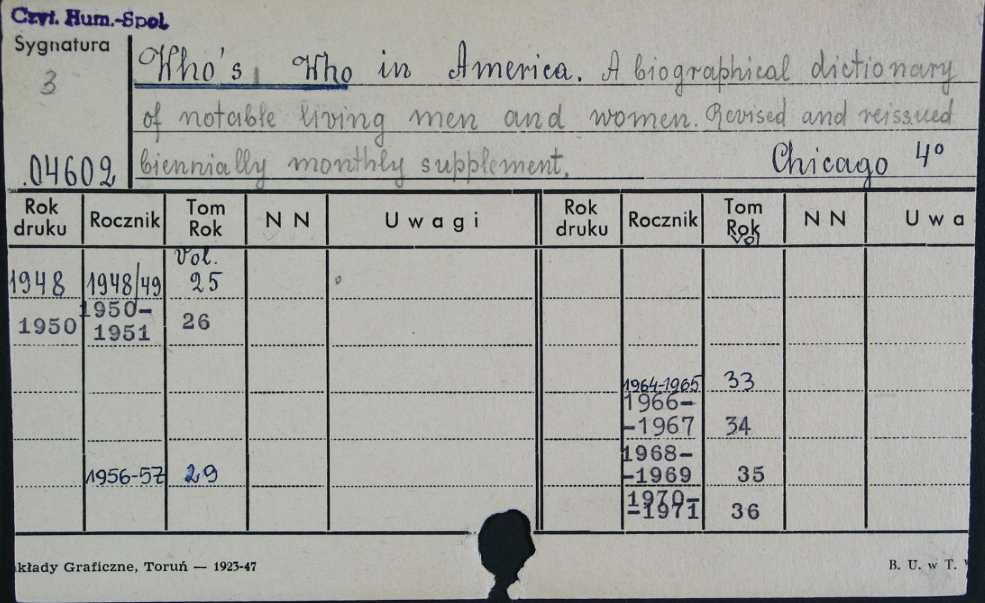 Czyt. Hum.-Społ.
Sygnatura
3
.04602
Who's Who in America. A biographical dictionary
of notable living men and women. Revised and reissued
biennially monthly supplement.
Chicago 4°
Rok druku Rocznik Tom Rok N N Uwagi Rok druku Rocznik Tom Rok N N Uwa
Vol. Vol
1948 1948/49 25
1950 1950-1951 26
1964-1965 33
1966-
-1967 34
1968-
-1969 35
1956-57 29
1970-
-1971 36
kłady Graficzne, Toruń — 1923-47
B. U. w T.